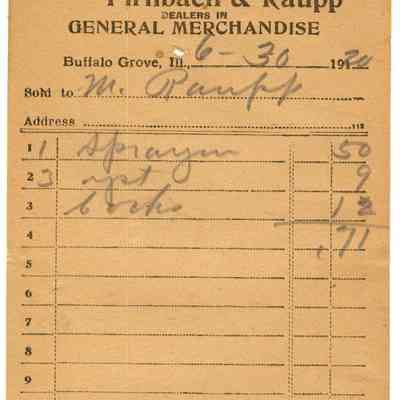 Firnbach & Raupp
DEALERS IN
GENERAL MERCHANDISE
Buffalo Grove, Ill., 6-30 1920
Sold to M. Raupp
Address 112
1 1 Sprayer 50
2 3 9
3 12
4 .71
5
6
7
8
9